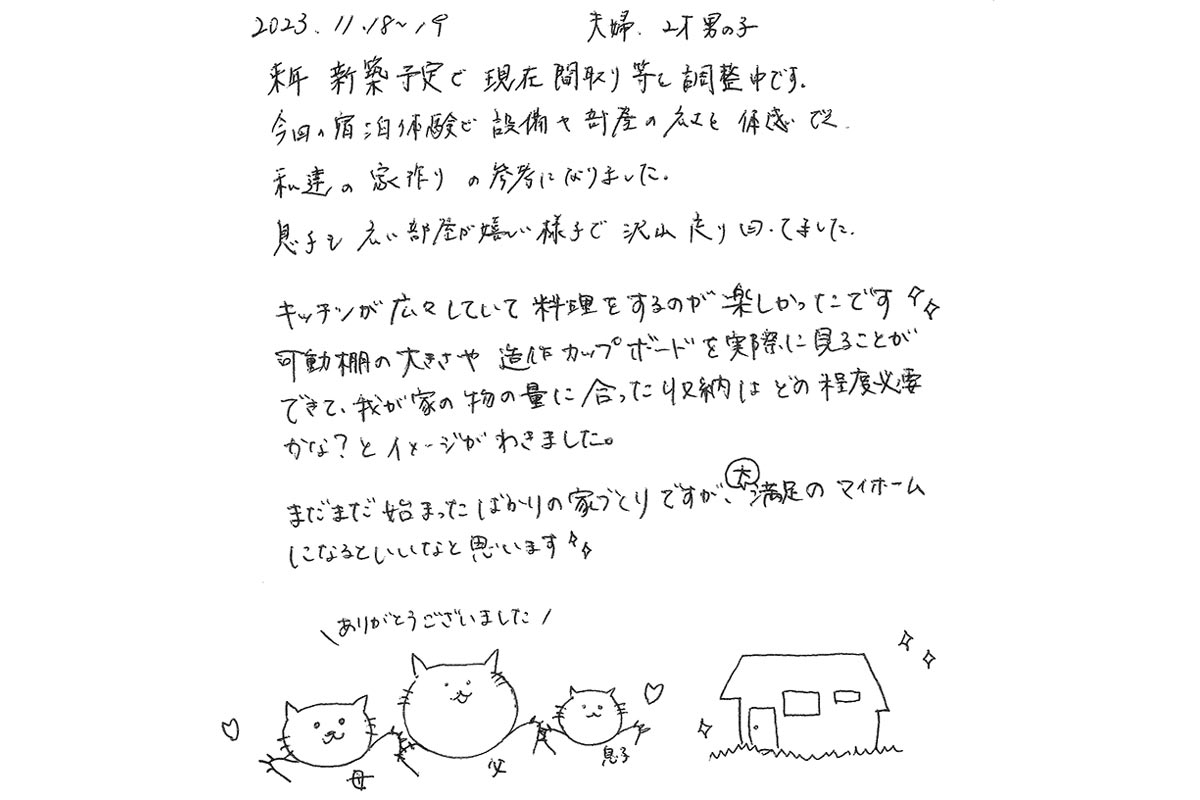 2023.11.18~19 夫婦、2才男の子
来年 新築予定で 現在間取り等を調整中です。
今回の宿泊体験で 設備や部屋の広さを 体感でき、
私達の家作りの参考になりました。
息子も 広い部屋が嬉しい様子で 沢山走り回ってました。
キッチンが広々していて 料理をするのが楽しかったです
可動棚の大きさや 造作カップボードを実際に見ることが
できて、我が家の物の量に合った収納はどの程度必要
かな?とイメージがわきました。
まだまだ始まったばかりの家づくりですが、大満足のマイホーム
になるといいなと思います
\ありがとうございました/
母 父 息子